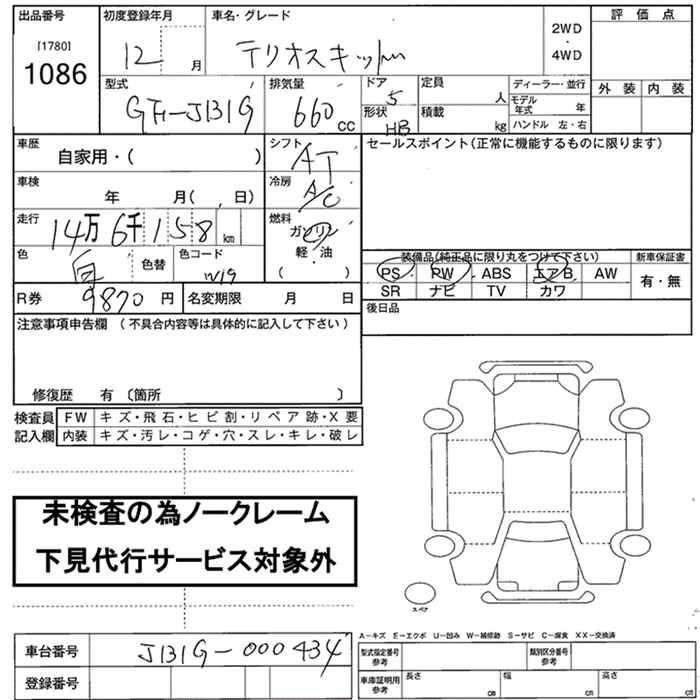 出品番号 初度登録年月 車名・グレード 評価点
[1780]
1086
12 月 テリオスキッド 2WD・4WD
外装 内装
型式 排気量 ドア 定員 ディーラー・並行
GF-J131G 660 CC 5 人 モデル年式 年
形状 HB 積載 kg ハンドル 左・右
車歴 シフト セールスポイント(正常に機能するものに限ります)
自家用・( ) AT
車検 冷房
年 月( 、日) A/C
走行 燃料
14万 6千 1 5 8 km ガソリン
軽・油
( )
色 色替 色コード
白 W19
装備品(純正品に限り丸をつけて下さい) 新車保証書
PS・PW・ABS エアB AW 有・無
SR ナビ TV カワ
R券 9870 円 名変期限 月 日
後日品
注意事項申告欄 (不具合内容等は具体的に記入して下さい)
修復歴 有 〔箇所 〕
検査員 FW キズ・飛石・ヒビ割・リペア跡・X要
記入欄 内装 キズ・汚レ・コゲ・穴・スレ・キレ・破レ
未検査の為ノークレーム
下見代行サービス対象外
スペア
A−キズ E−エクボ U−凹み W−補修跡 S−サビ C−腐食 XX−交換済
車台番号 J131G-000434
登録番号
型式指定番号参考 類別区分番号参考
車庫証明用参考 長さ cm 幅 cm 高さ cm